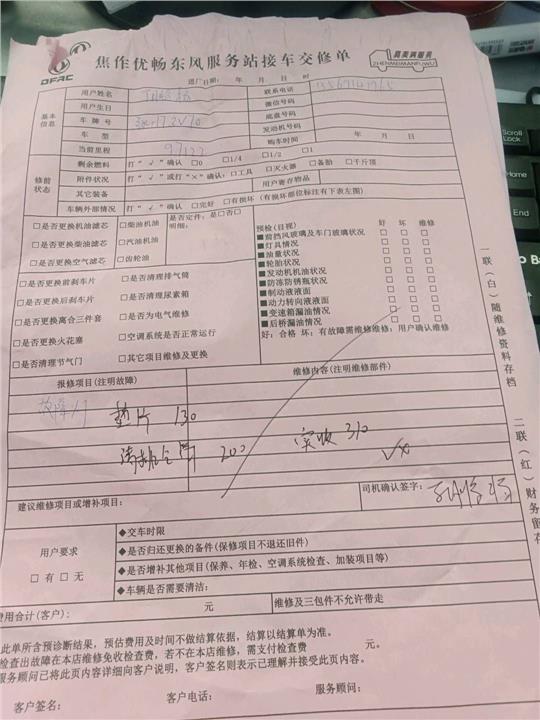 DFAC 焦作优畅东风服务站接车交修单 真美满服务
ZHENMEIMANFUWU
进厂日期: 年 月 日 时
基本信息
用户姓名 联系电话
用户生日 微信号码
车牌号 底盘号码
车型 发动机号码
当前里程 97122 购车时间 年 月 日
修前状态
剩余燃料 打“√”确认 □0 □1/4 □1/2 □1
附件状况 打“√”或打“×”确认:□工具 □灭火器 □备胎 □千斤顶
其它装备 用户寄存物品
车辆外部情况 打“√”确认 □完好 □有损坏(有损坏部位标注有下表左图)
□是否更换机油滤芯 □柴油机油 是否定件:是□否□
□是否更换柴油滤芯 □汽油机油 明细:
□是否更换空气滤芯 □齿轮油
□是否更换前刹车片 □是否清理排气筒
□是否更换后刹车片 □是否清理尿素箱
□是否更换离合三件套 □是否为电气维修
□是否更换火花塞 □空调系统是否正常运行
□是否清理节气门 □其它项目维修及更换
预检(目视) 好 坏 维修
■前挡风玻璃及车门玻璃状况 □ □ □
■灯具情况 □ □ □
■油量状况 □ □ □
■轮胎状况 □ □ □
■发动机机油状况 □ □ □
■防冻防锈瓶状况 □ □ □
■制动液液面 □ □ □
■动力转向液液面 □ □ □
■变速箱漏油情况 □ □ □
■后桥漏油情况 □ □ □
好:合格 坏:有故障需维修维修:用户确认维修
报修项目(注明故障) 维修内容(注明维修部件)
故障灯 垫片 130
200 实收 310
建议维修项目或增补项目: 司机确认签字:
用户要求
□有 □无
◆交车时限
◆是否归还更换的备件(保修项目不退还旧件)
◆是否增补其他项目(保养、年检、空调系统检查、加装项目等)
◆车辆是否需要清洁:
费用合计(客户): 元 维修及三包件不允许带走
此单所含预诊断结果,预估费用及时间不做结算依据,结算以结算单为准。
检查出故障在本店维修免收检查费,若不在本店维修,需支付检查费 元。
服务顾问已将此页内容详细向客户说明,客户签名则表示已理解并接受此页内容。
客户签名: 客户电话: 服务顾问:
一联(白)随维修资料存档
二联(红)财务留存
Scroll Lock
Home
End